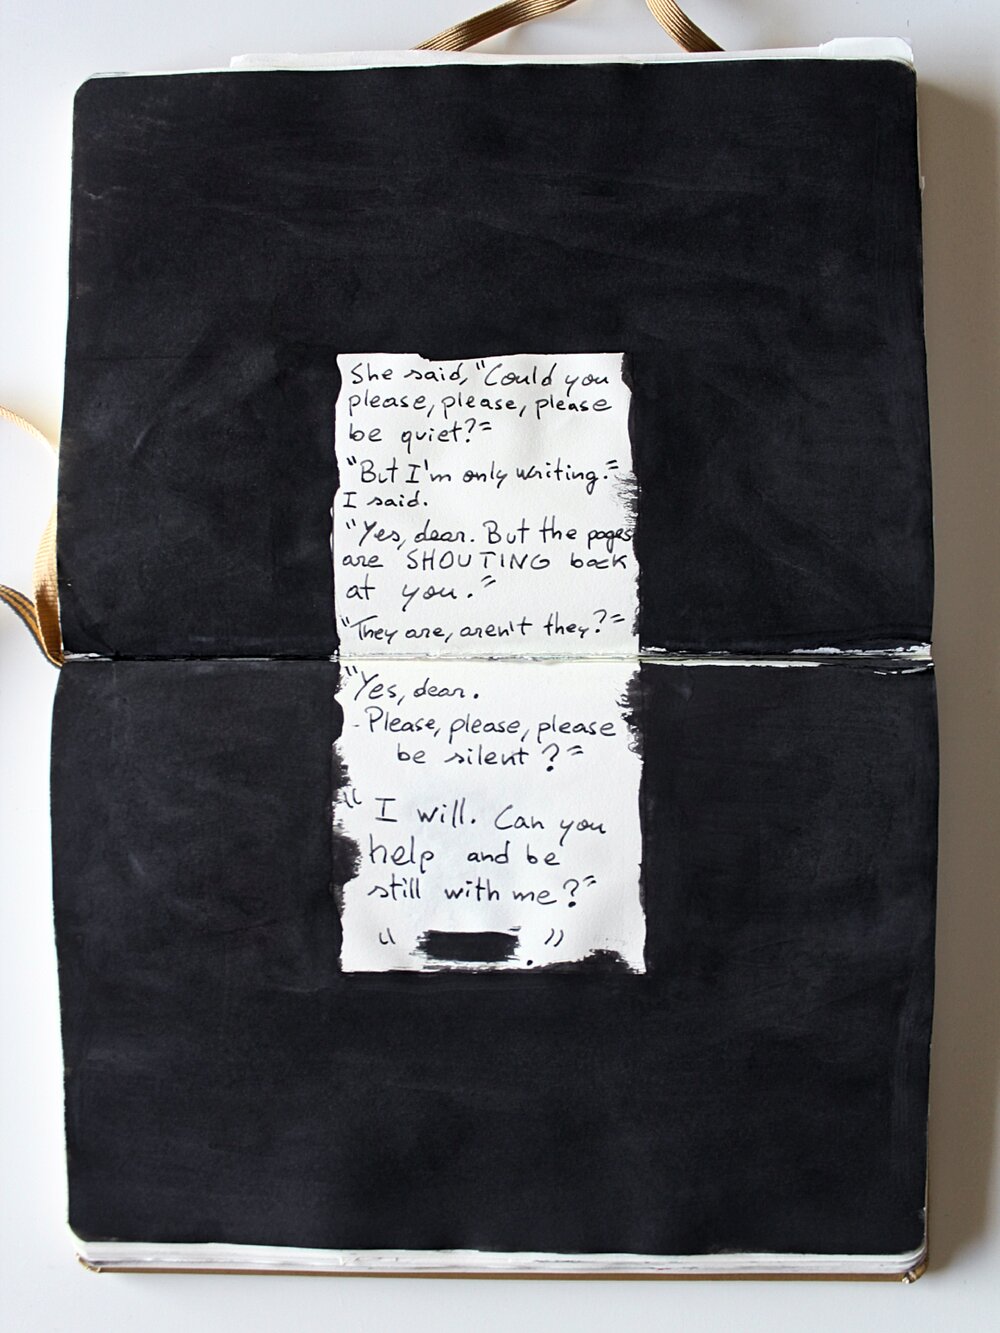 She said, "Could you
please, please, please
be quiet?"
"But I'm only writing."
I said.
"Yes, dear. But the pages
are SHOUTING back
at you."
"They are, aren't they?"
"Yes, dear.
- Please, please, please
be silent?"
"I will. Can you
help and be
still with me?"
" ."